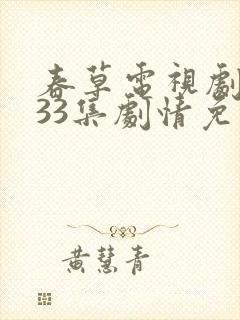 春草電視劇
33集劇情免
黃慧青